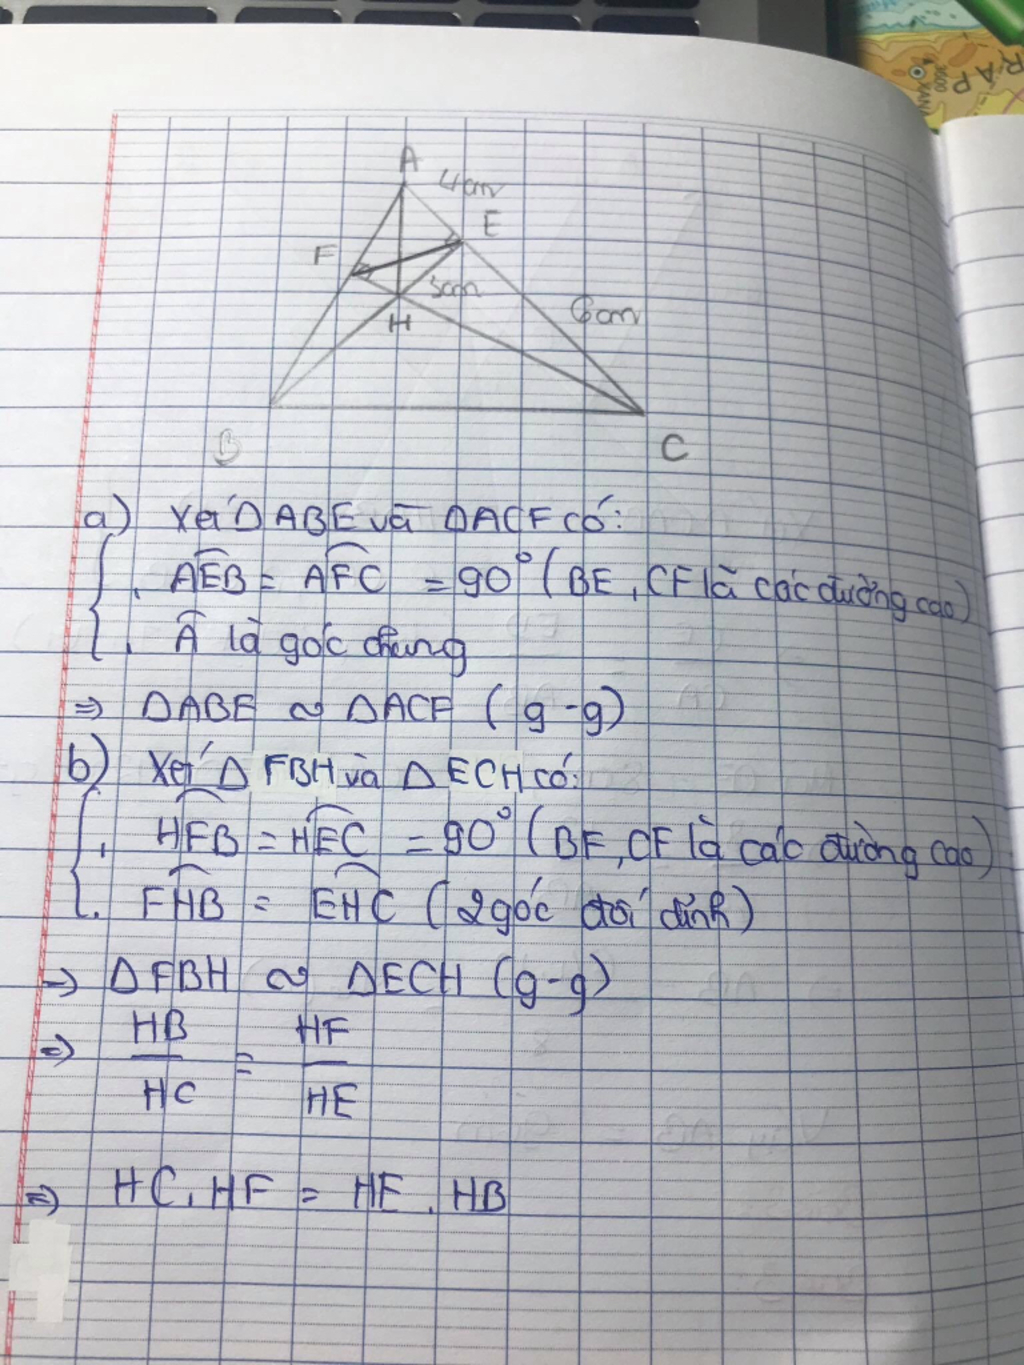 RAP
3600
XAN
A
4cm
E
F
3cm
6cm
H
B
C
a) Xét ΔABE và ΔACF có:
. AEB = AFC = 90° (BE, CF là các đường cao)
. Â là góc chung
⇒ ΔABE ∽ ΔACF (g-g)
b) Xét Δ FBH và Δ ECH có:
. HFB = HEC = 90° (BE, CF là các đường cao)
. FHB = EHC (2 góc đối đỉnh)
→ ΔFBH ∽ ΔECH (g-g)
⇒ HB/HC = HF/HE
⇒ HC . HF = HE . HB